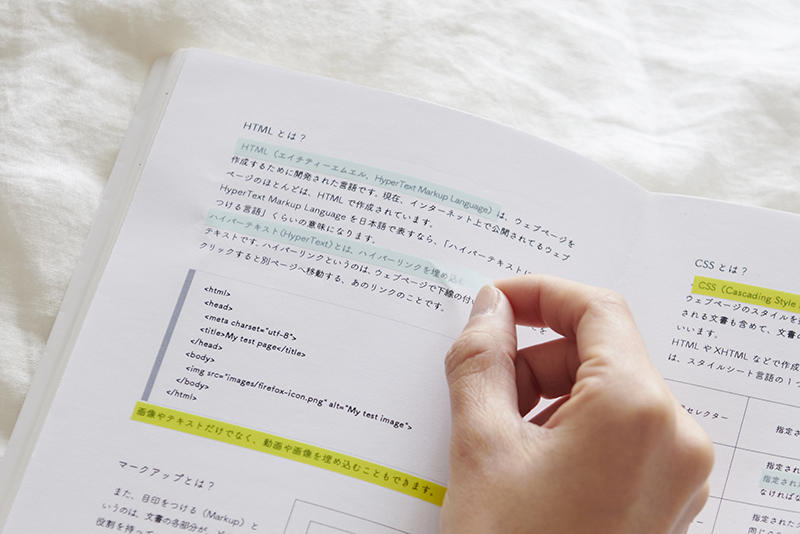 HTML とは？
HTML（エイチティーエムエル、HyperText Markup Language）は、ウェブページを
作成するために開発された言語です。現在、インターネット上で公開されてるウェブ
ページのほとんどは、HTML で作成されています。
HyperText Markup Language を日本語で表すなら、「ハイパーテキストに
つける言語」くらいの意味になります。
ハイパーテキスト(HyperText)とは、ハイパーリンクを埋め込む
テキストです。ハイパーリンクというのは、ウェブページで下線の付い
クリックすると別ページへ移動する、あのリンクのことです。
<html>
<head>
<meta charset="utf-8">
<title>My test page</title>
</head>
<body>
<img src="images/firefox-icon.png" alt="My test image">
</body>
</html>
画像やテキストだけでなく、動画や画像を埋め込むこともできます。
マークアップとは？
また、目印をつける（Markup）と
いうのは、文書の各部分が、
役割を持って
CSS とは？
CSS（Cascading Style
ウェブページのスタイルを
される文書も含めて、文書の
いいます。
HTML や XHTML などで作成
は、スタイルシート言語の 1
セレクター
指定さ
指定された
指定され
なければな
指定された